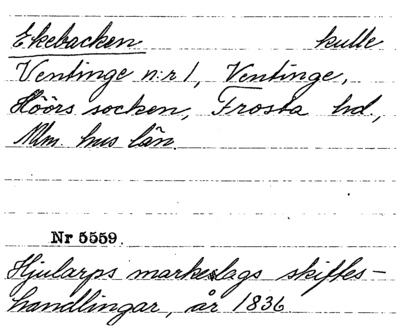 Ekebacken kulle
Ventinge n:r 1, Ventinge,
Höörs socken, Frosta hd.,
Mlm. hus län.
Nr 5559.
Hjularps markeslags skiftes-
handlingar, år 1836.